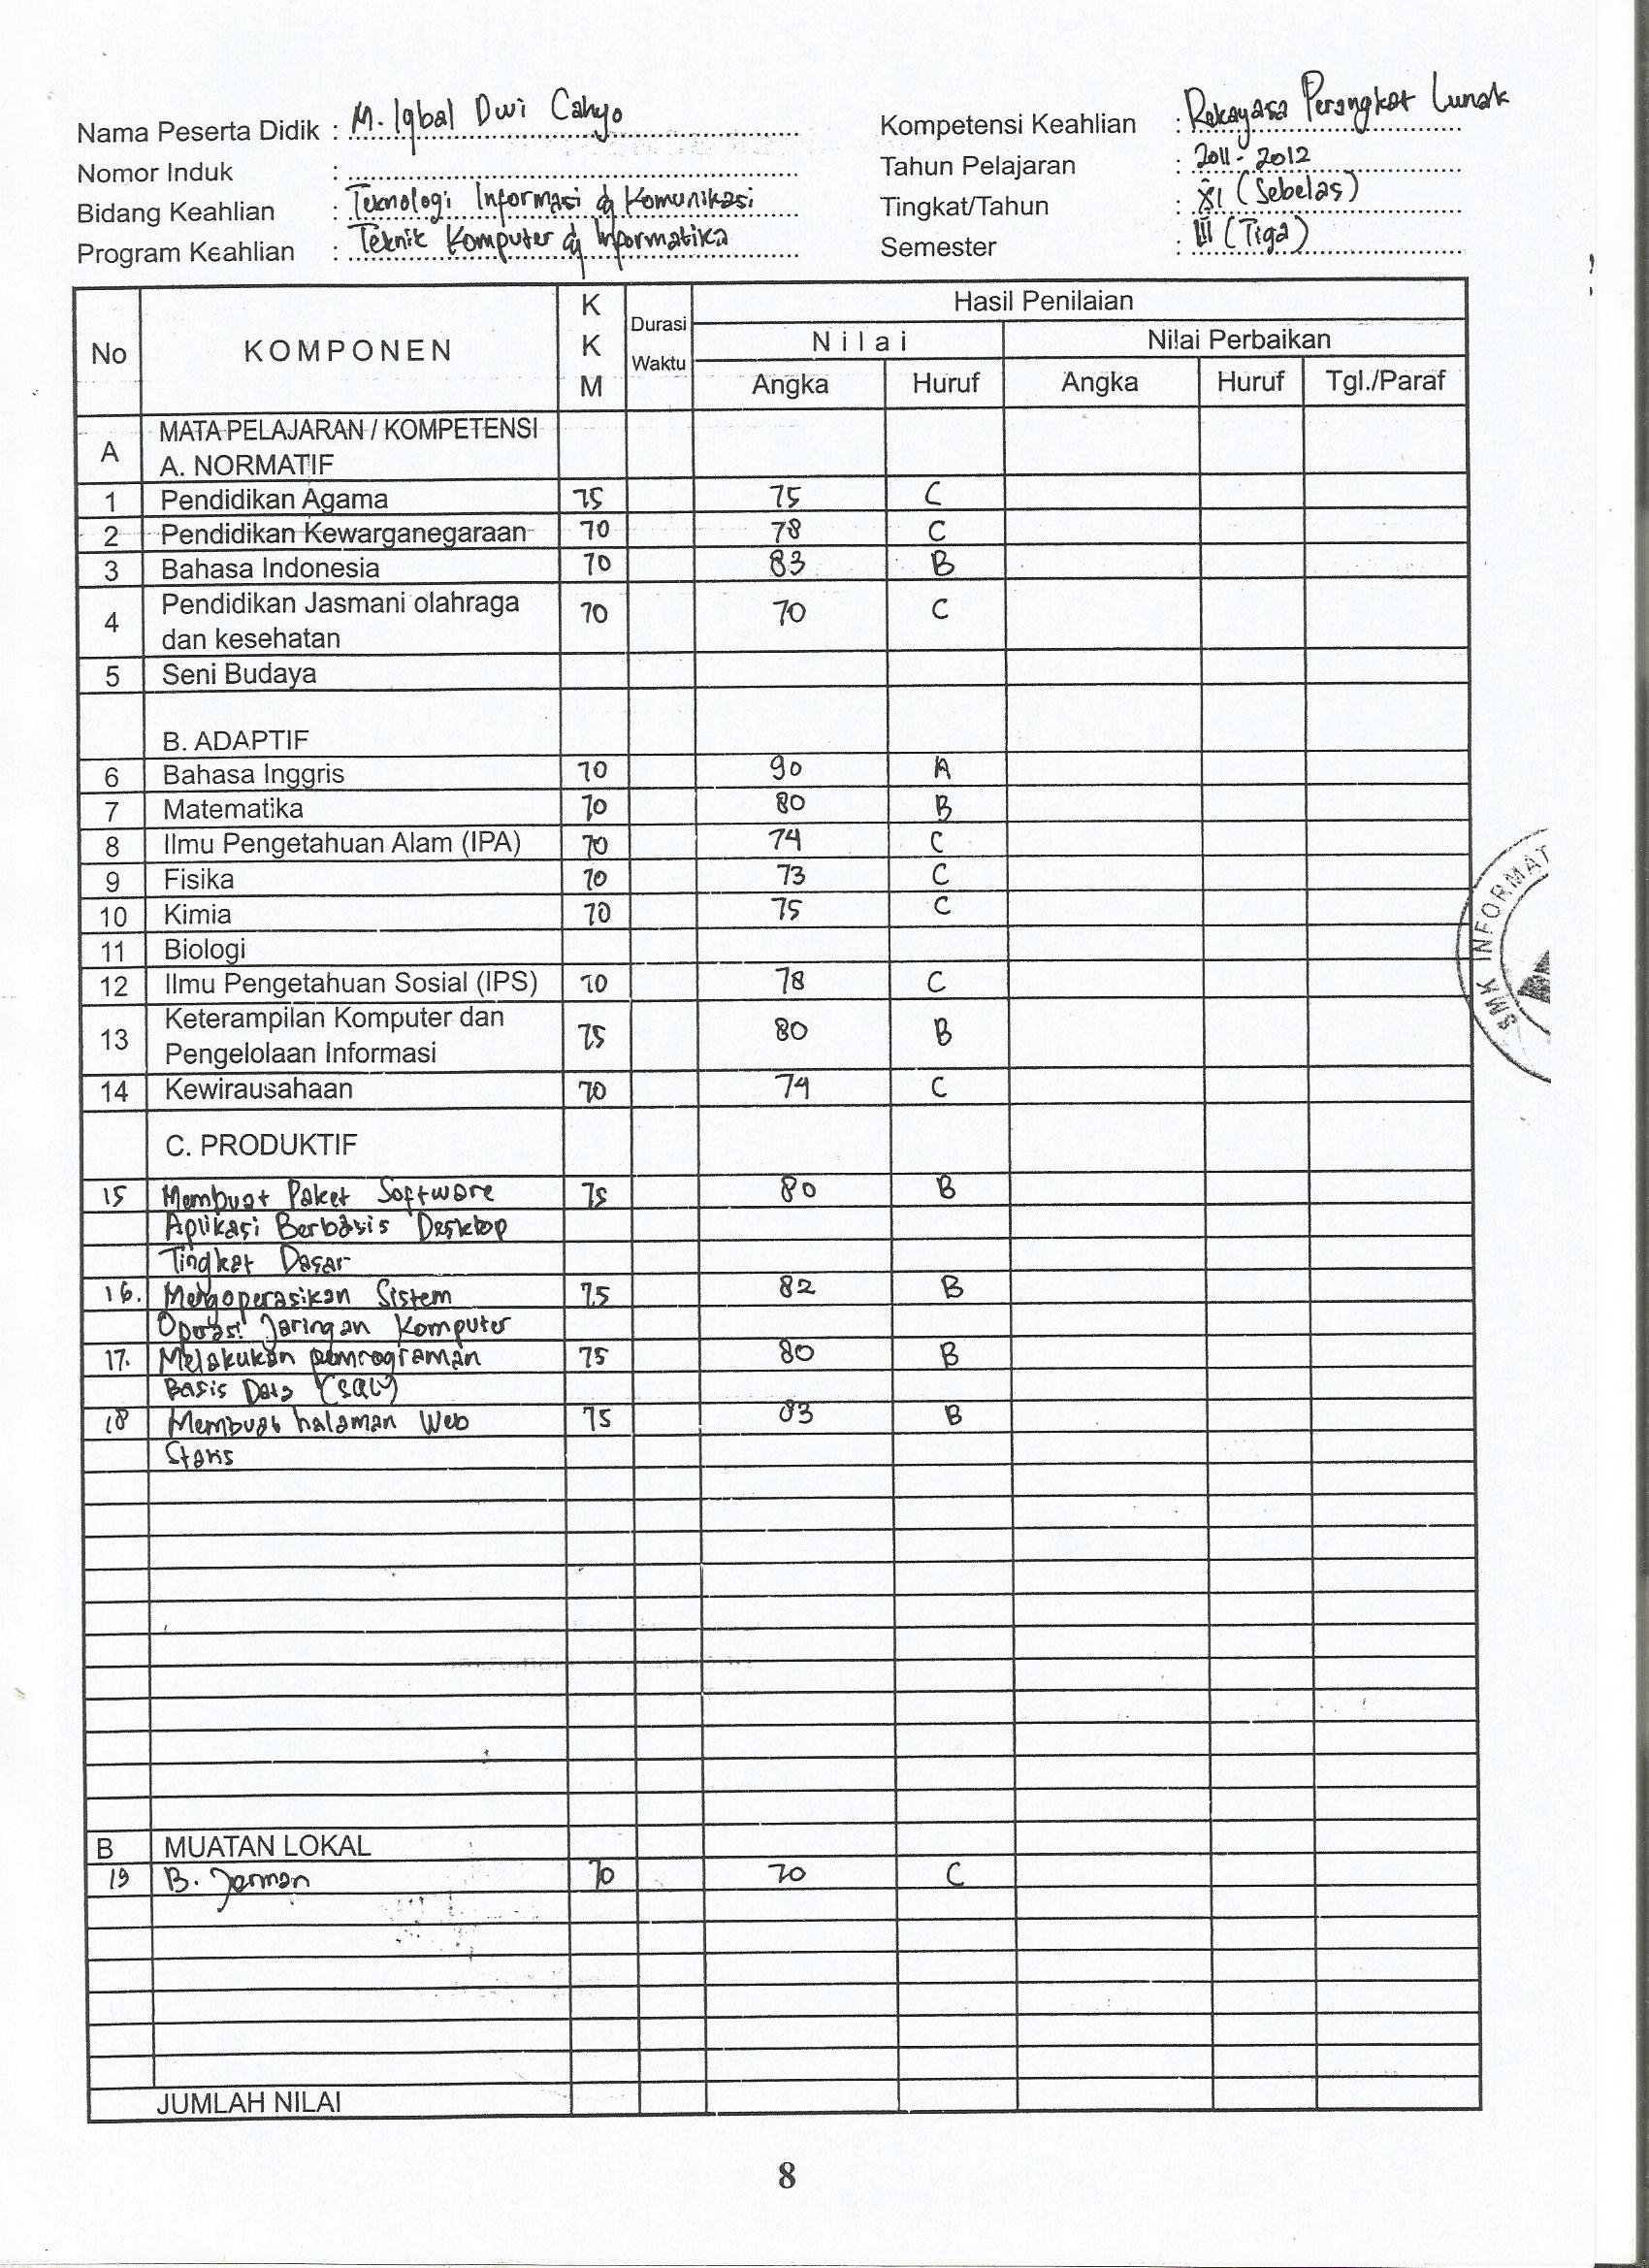 Nama Peserta Didik : M. Iqbal Dwi Cahyo
Nomor Induk :
Bidang Keahlian : Teknologi Informasi & Komunikasi
Program Keahlian : Teknik Komputer & Informatika
Kompetensi Keahlian : Rekayasa Perangkat Lunak
Tahun Pelajaran : 2011 - 2012
Tingkat/Tahun : XI (Sebelas)
Semester : III (Tiga)
No KOMPONEN KKM Durasi Waktu Hasil Penilaian
Nilai Nilai Perbaikan
Angka Huruf Angka Huruf Tgl./Paraf
A MATA PELAJARAN / KOMPETENSI
A. NORMATIF
1 Pendidikan Agama 75 75 C
2 Pendidikan Kewarganegaraan 70 78 C
3 Bahasa Indonesia 70 83 B
4 Pendidikan Jasmani olahraga 70 70 C
dan kesehatan
5 Seni Budaya
B. ADAPTIF
6 Bahasa Inggris 70 90 A
7 Matematika 70 80 B
8 Ilmu Pengetahuan Alam (IPA) 70 74 C
9 Fisika 70 73 C
10 Kimia 70 75 C
11 Biologi
12 Ilmu Pengetahuan Sosial (IPS) 70 78 C
13 Keterampilan Komputer dan 75 80 B
Pengelolaan Informasi
14 Kewirausahaan 70 74 C
C. PRODUKTIF
15 Membuat Paket Software 75 80 B
Aplikasi Berbasis Desktop
Tingkat Dasar
16. Mengoperasikan Sistem 75 82 B
Operasi Jaringan Komputer
17. Melakukan pemrograman 75 80 B
Basis Data (SQL)
18 Membuat halaman Web 75 83 B
Statis
B MUATAN LOKAL
19 B. Jerman 70 70 C
JUMLAH NILAI
8
SMK INFORMAT